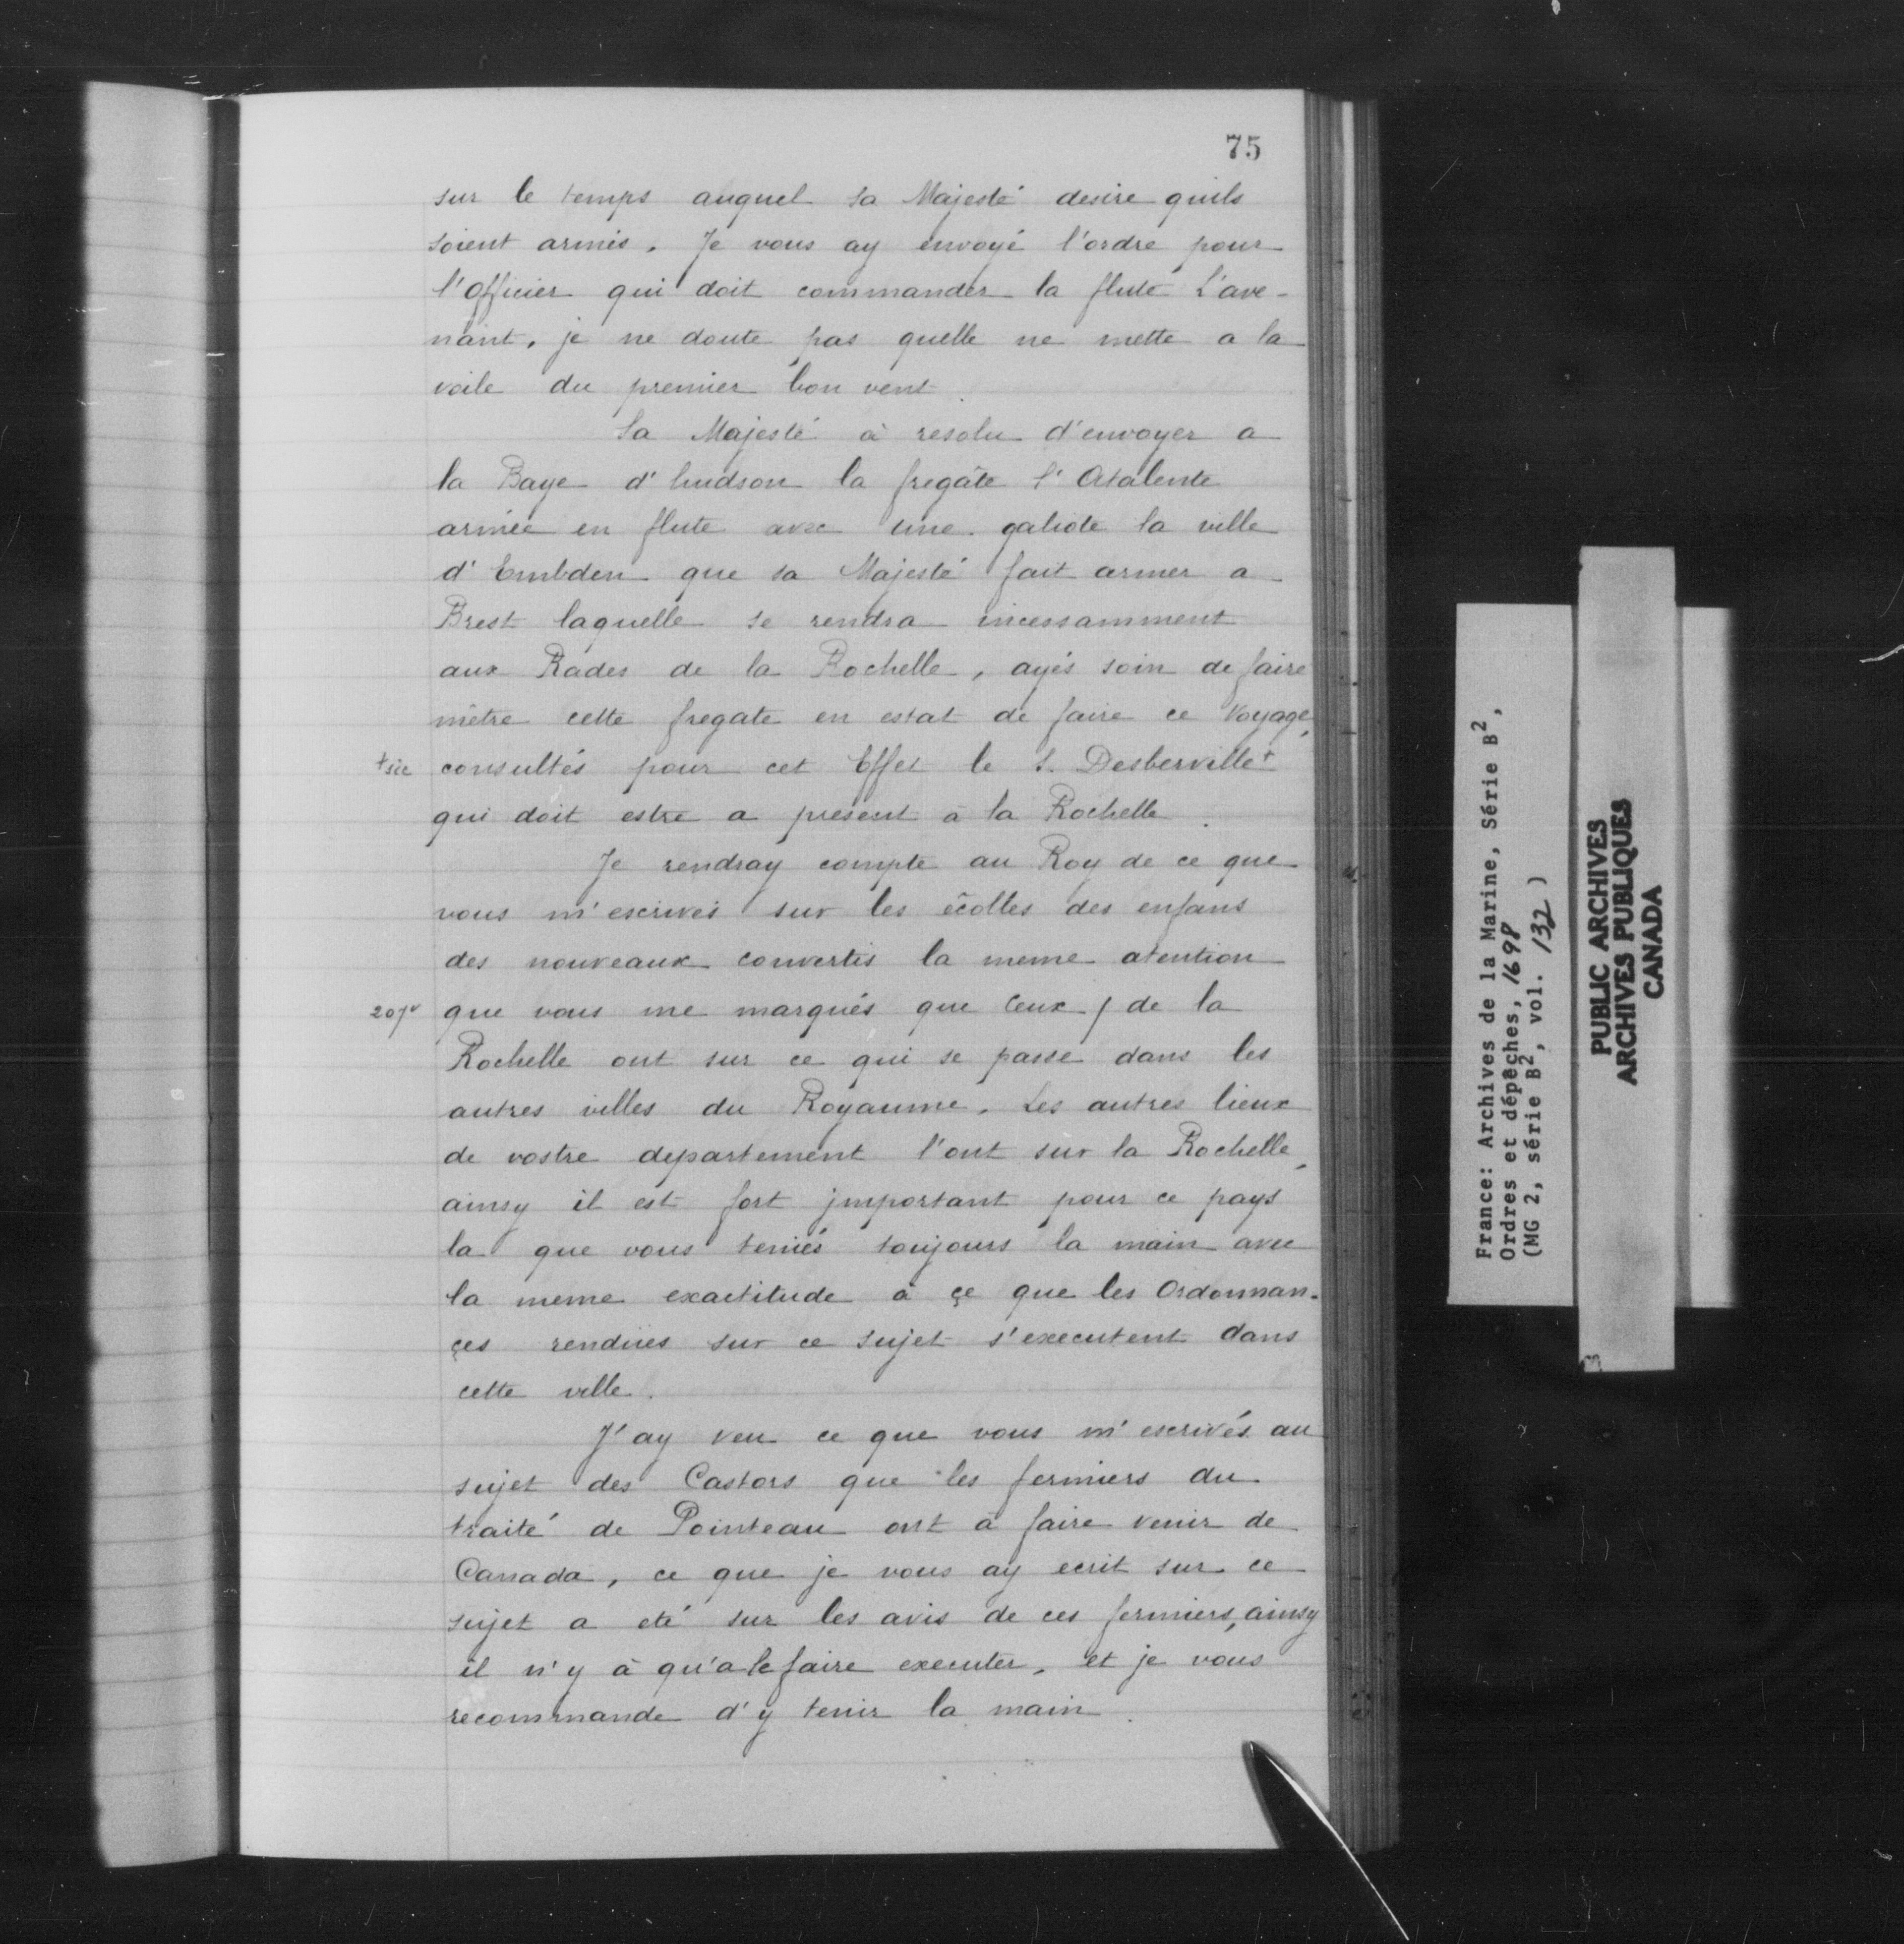 75
sur le temps auquel sa Majesté desire quils
soient armés. Je vous ay envoyé l'ordre pour
l'officier qui doit commander la flute L'ave-
nant, je ne doute pas quelle ne mette a la
voile du premier bon vent.
Sa Majesté à resolu d'envoyer a
la Baye d'hudson la fregate l'Atalente
armée en flute avec une galiote la ville
d'Embden que sa Majesté fait armer a
Brest laquelle se rendra incessamment
aux Rades de la Rochelle, ayés soin de faire
metre cette fregate en estat de faire ce Voyage,
+sic consultés pour cet Effet le S. Desberville+
qui doit estre a present à la Rochelle.
Je rendray compte au Roy de ce que
vous m'escrivés sur les écolles des enfans
des nouveaux convertis la meme atention
207v que vous me marqués que Ceux / de la
Rochelle ont sur ce qui se passe dans les
autres villes du Royaume. Les autres lieux
de vostre departement l'ont sur la Rochelle,
ainsy il est fort jmportant pour ce pays
la que vous teniés toujours la main avec
la meme exactitude à çe que les Ordonnan-
çes rendües sur ce sujet s'executent dans
cette ville.
J'ay veu ce que vous m'escrivés au
sujet des Castors que les fermiers du
traité de Pointeau ont à faire venir de
Canada, ce que je vous ay ecrit sur ce
sujet a eté sur les avis de ces fermiers, ainsy
il n'y à qu'a le faire executer, et je vous
recommande d'y tenir la main.
France: Archives de la Marine, Série B2,
Ordres et dépêches, 1698
(MG 2, série B2, vol. 132)
PUBLIC ARCHIVES
ARCHIVES PUBLIQUES
CANADA